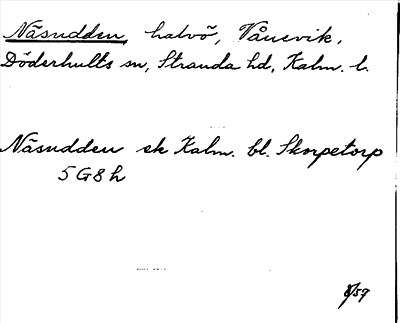 Näsudden, halvö, Vånevik,
Döderhults sn, Stranda hd, Kalm. l.
Näsudden ek Kalm. bl. Skorpetorp
5G8h
8/59